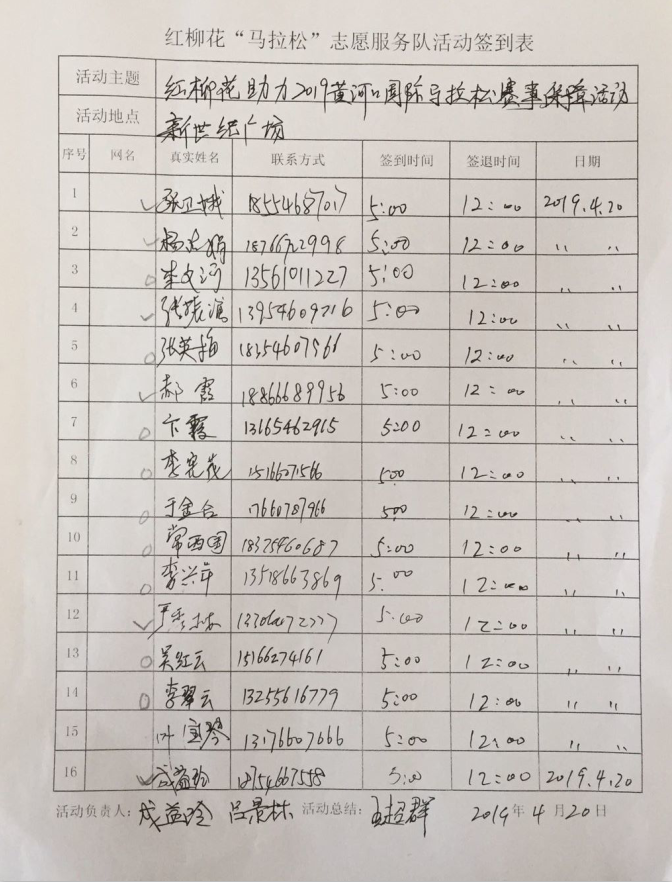 红柳花“马拉松”志愿服务队活动签到表
活动主题 红柳花助力2019黄河口国际马拉松赛事保障活动
活动地点 新世纪广场
序号 网名 真实姓名 联系方式 签到时间 签退时间 日期
1 张卫娥 18554687017 5:00 12:00 2019.4.20
2 5:00 12:00 〃 〃
3 李文河 13561011227 5:00 12:00 〃 〃
4 13954609216 5:00 12:00 〃 〃
5 张英梅 5:00 12:00 〃 〃
6 郝霞 18866689956 5:00 12:00 〃 〃
7 卞霞 13165462915 5:00 12:00 〃 〃
8 500 12:00 〃 〃
9 于金台 17660787966 500 12:00 〃 〃
10 常西国 5:00 12:00 〃 〃
11 李兴年 13518663869 5:00 12:00 〃 〃
12 5:00 12:00 〃 〃
13 吴红云 15166274161 5:00 12:00 〃 〃
14 李翠云 13255616779 5:00 12:00 〃 〃
15 叶宝琴 13176607666 5:00 12:00 〃 〃
16 成益玲 18754667558 5:00 12:00 2019.4.20
活动负责人: 成益玲 吕景林 活动总结: 王超群 2019年4月20日